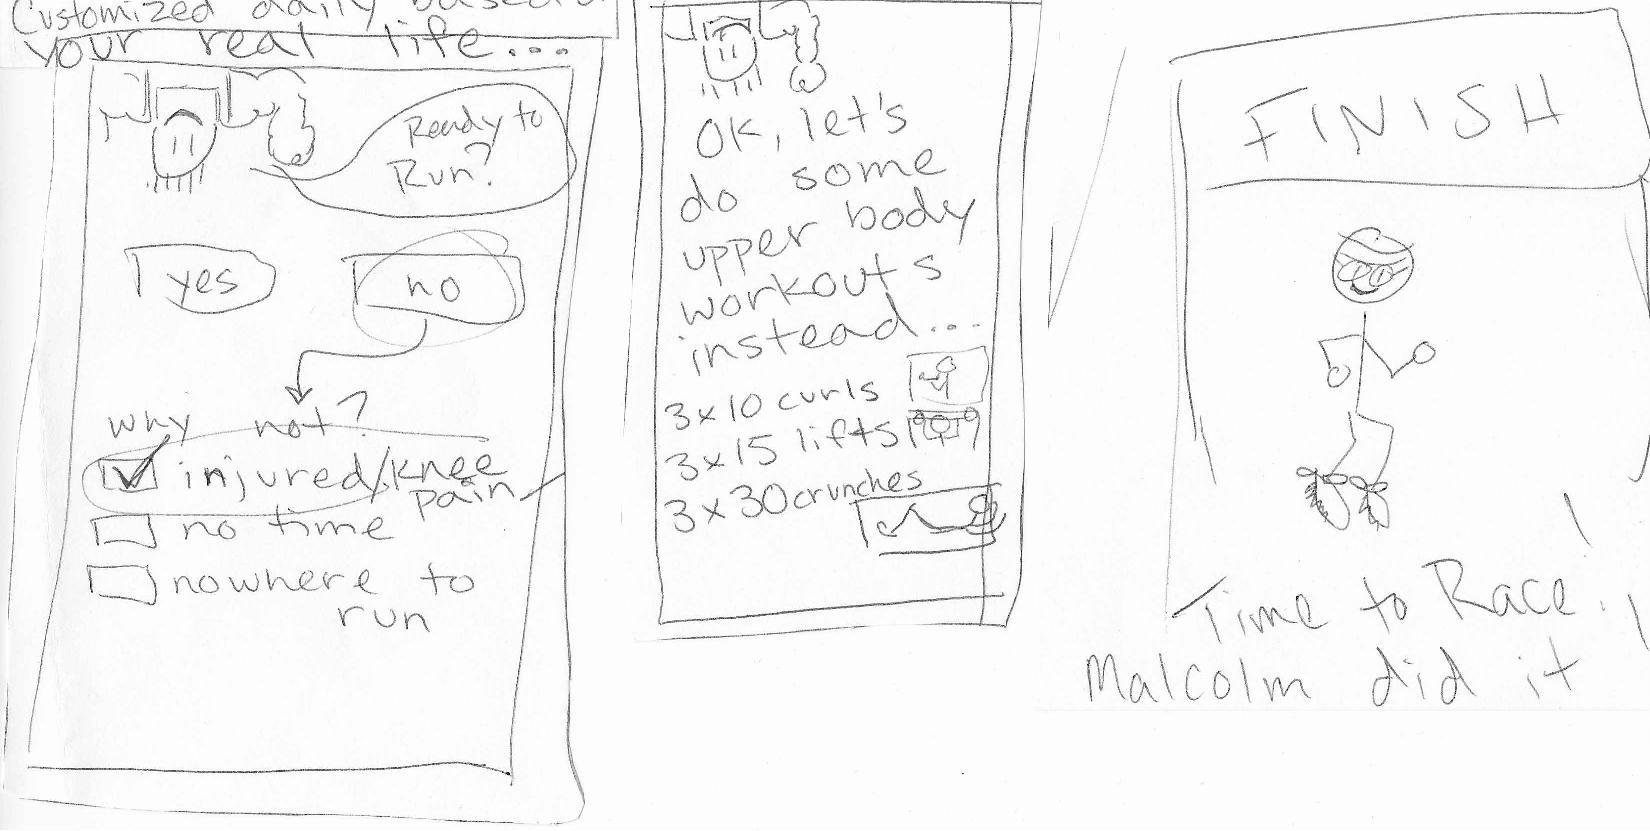 Customized daily based
your real life...
Ready to
Run?
yes
no
why not?
injured/knee
pain
no time
nowhere to
run
OK, let's
do some
upper body
workouts
instead...
3x10 curls
3x15 lifts
3x30 crunches
FINISH
Time to Race!
Malcolm did it!